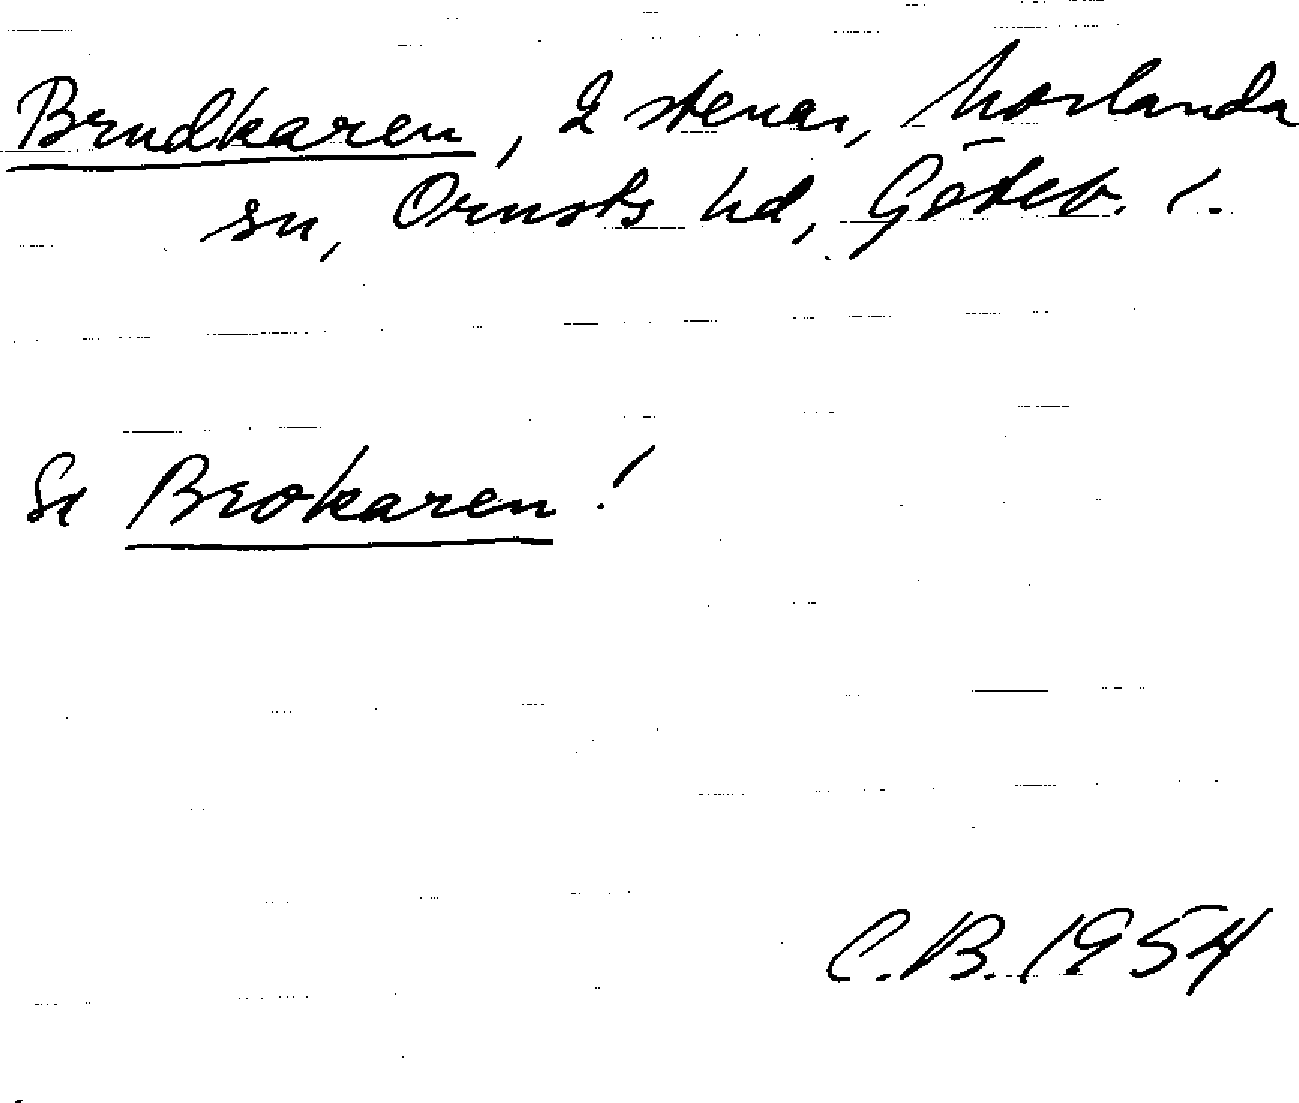 Brudkaren, 2 stenar, Morlanda
sn, Orusts hd, Göteb. l.
Se Brokaren!
C.B. 1954